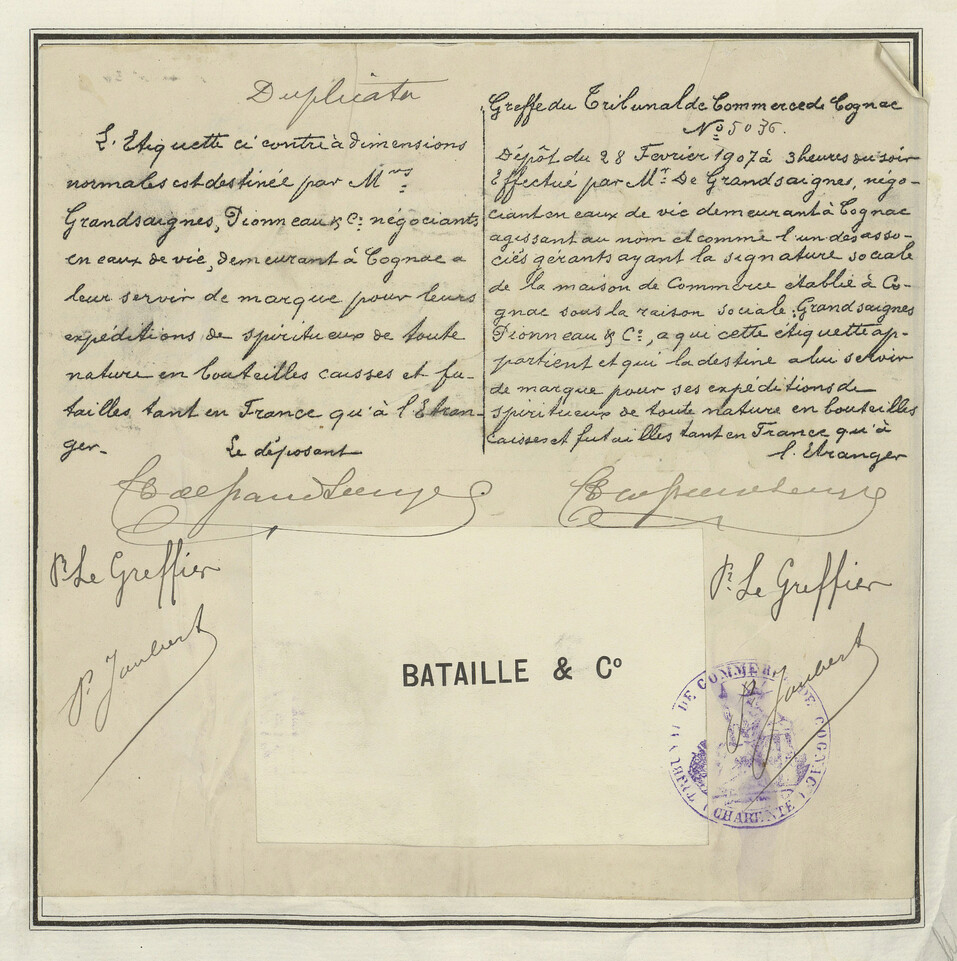 Duplicata
L'Etiquette ci contre à dimensions
normales est destinée par Mrs
Grandsaignes, Pionneau & Cie négociants
en eaux de vie, demeurant à Cognac a
leur servir de marque pour leurs
expéditions de spiritueux de toute
nature en bouteilles caisses et fu-
tailles tant en France qu'à l'Etran-
ger.
Le déposant
Pr. Le Greffier
P. Joubert
Greffe du Tribunal de Commerce de Cognac
No 5036.
Dépôt du 28 Fevrier 1907 à 3 heures du soir
Effectué par Mr. De Grandsaignes, négo-
ciant en eaux de vie demeurant à Cognac
agissant au nom et comme l'un des asso-
ciés gérants ayant la signature sociale
de la maison de Commerce établie à Co-
gnac sous la raison sociale: Grandsaignes
Pionneau & Cie, a qui cette étiquette ap-
partient et qui la destine a lui servir
de marque pour ses expéditions de
spiritueux de toute nature en bouteilles
caisses et futailles tant en France qu'à
l'Etranger
Pr. Le Greffier
P. Joubert
BATAILLE & Co
TRIBUNAL DE COMMERCE DE COGNAC
(CHARENTE)